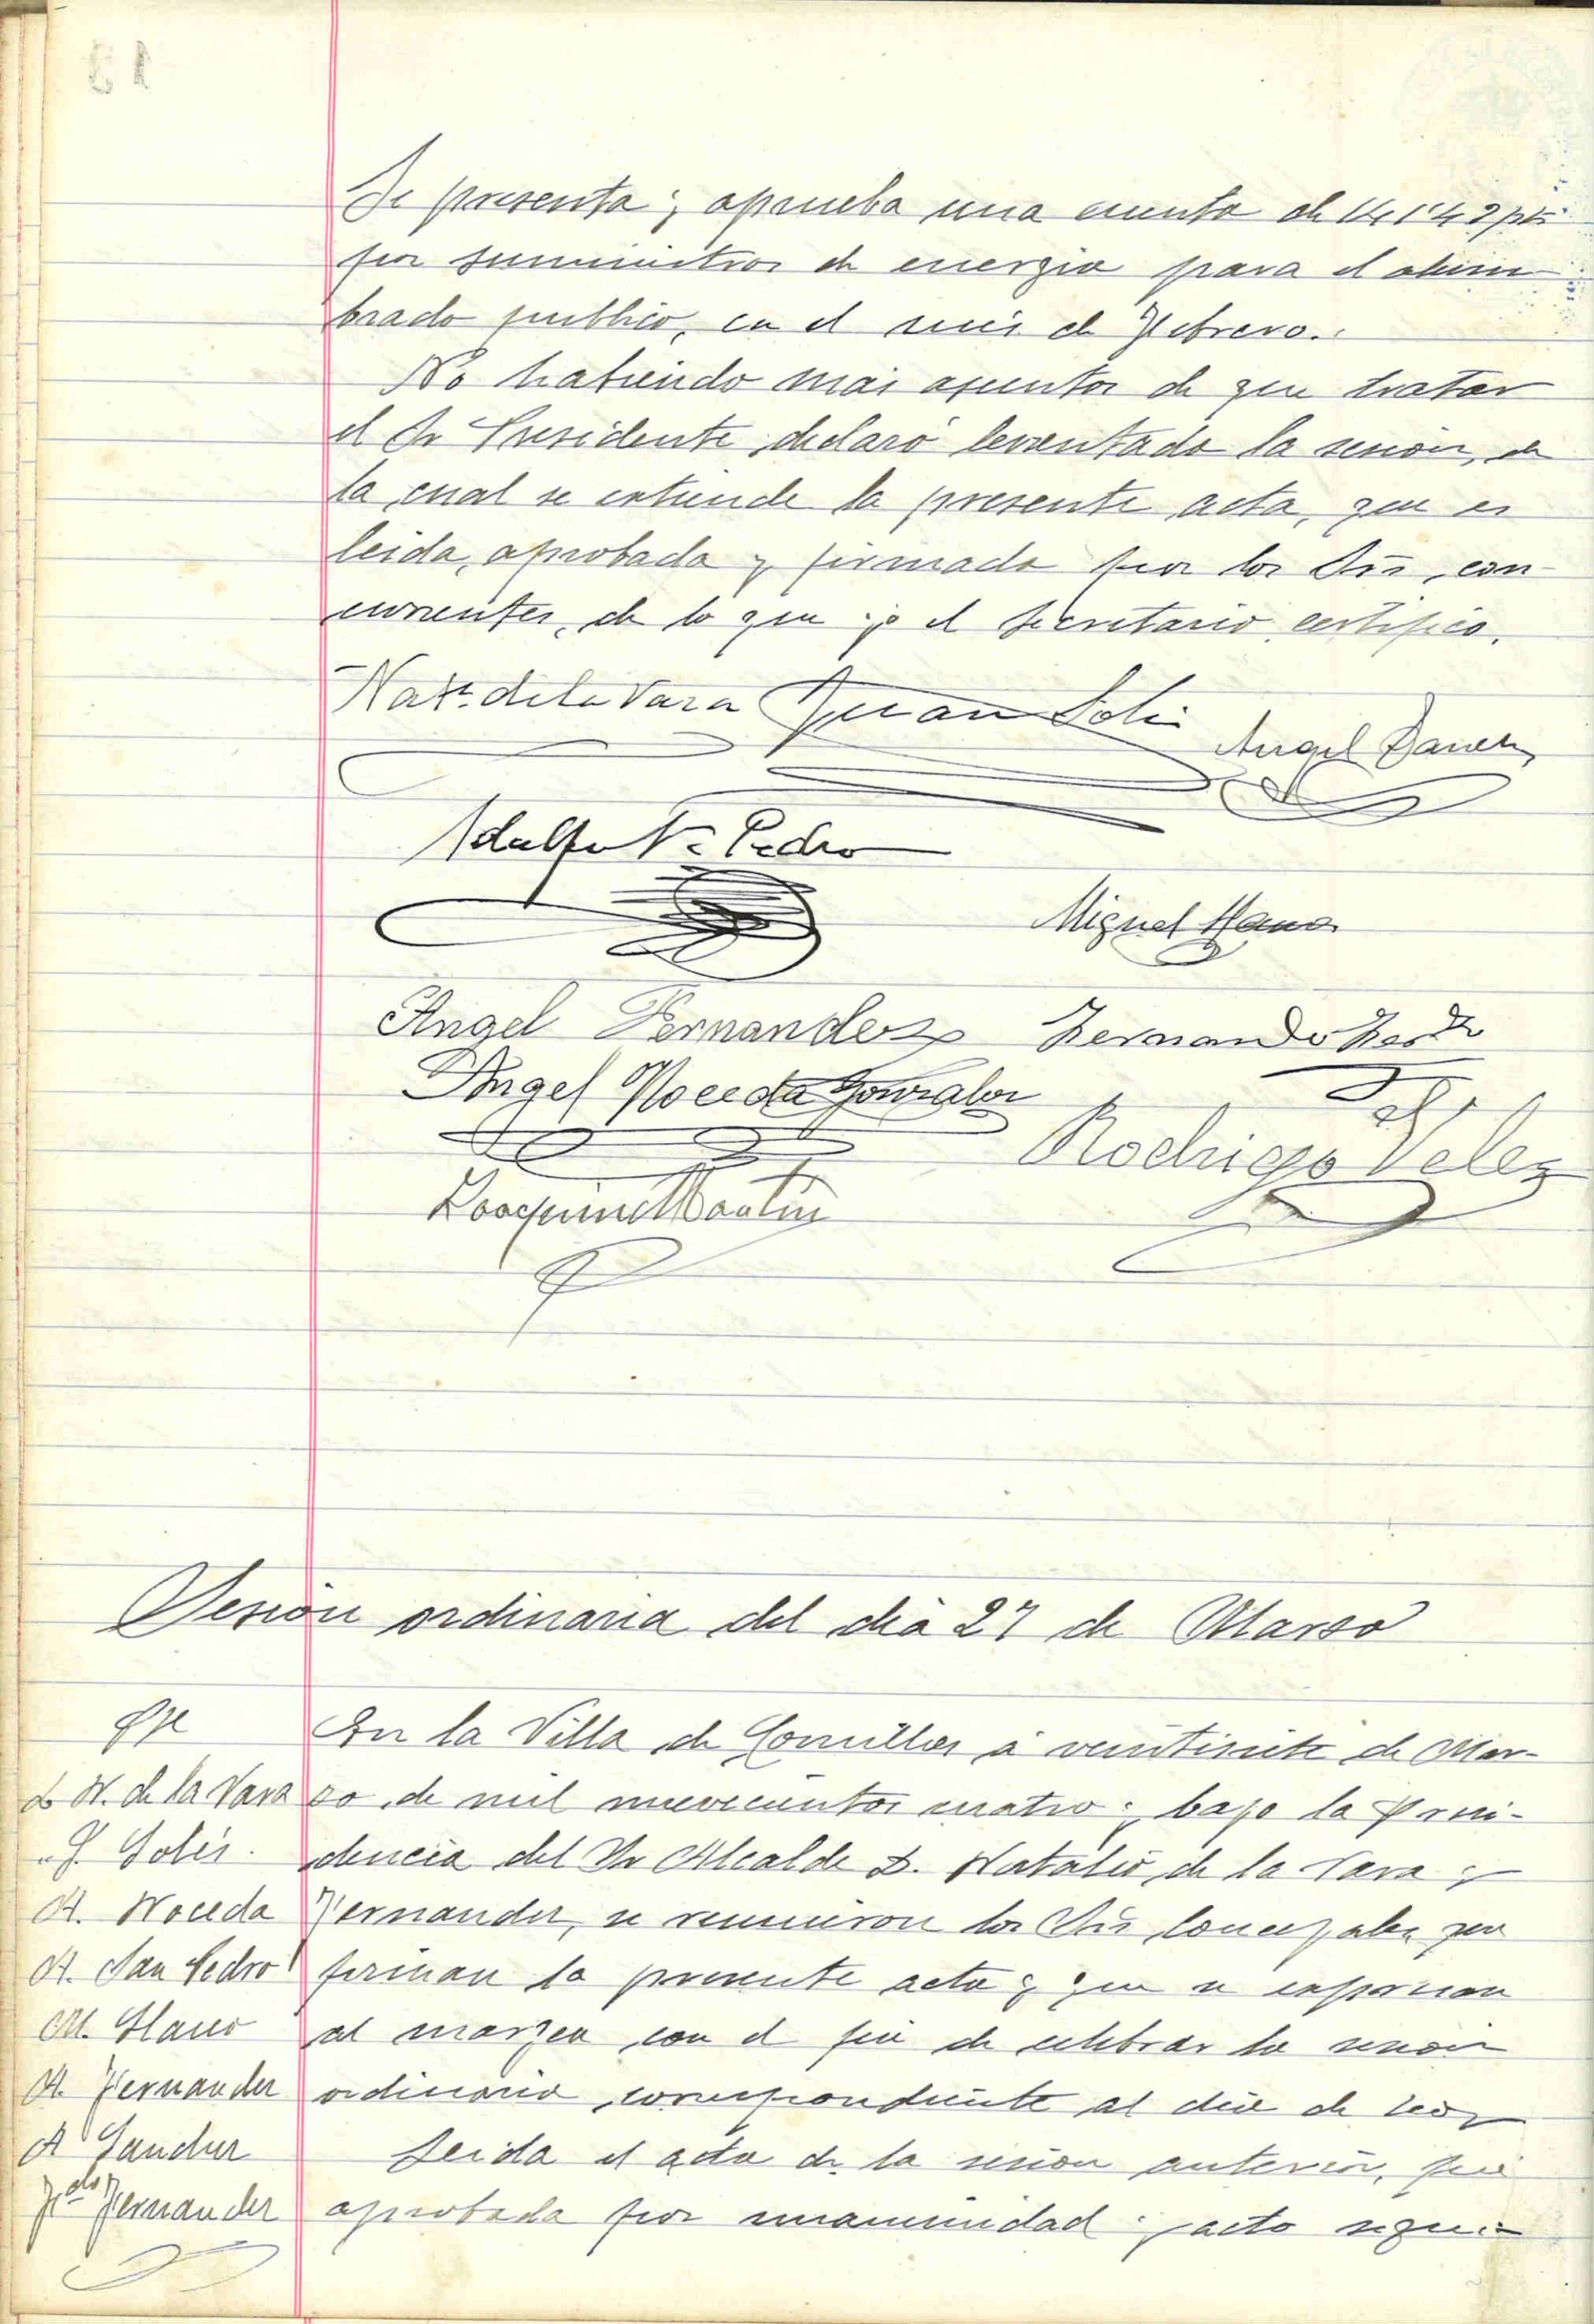 Se presenta y aprueba una cuenta de 141'42 pts
por suministros de energia para el alum
brado publico, en el mes de Febrero.
No habiendo mas asuntos de que tratar
el Sr Presidente declaró levantada la sesion, de
la cual se extiende la presente acta, que es
leida, aprobada y firmada por los Srs con-
currentes, de lo que yo el Secretario certifico.
Natº de la Vara Juan Solis
Angel Sanchez
Adolfo Sn Pedro
Miguel Llano
Angel Fernandez Fernando
Angel Noceda Gonzalez
Rodrigo Velez
Joaquin Martin
Sesion ordinaria del dia 27 de Marzo
En la Villa de Comillas á veintisiete de Mar-
zo de mil novecientos cuatro y bajo la Presi-
dencia del Sr Alcalde D. Natalio de la Vara y
Fernandez, se reunieron los Srs Concejales que
firman la presente acta y que se expresan
al margen con el fin de celebrar la sesion
ordinaria correspondiente al dia de hoy
Leida el acta de la sesion anterior, fué
aprobada por unanimidad y acto segui
Pte
D. N. de la Vara
" J. Solis.
A. Noceda
A. San Pedro
M. Llano
A. Fernandez
A Sanchez
Fdo Fernandez